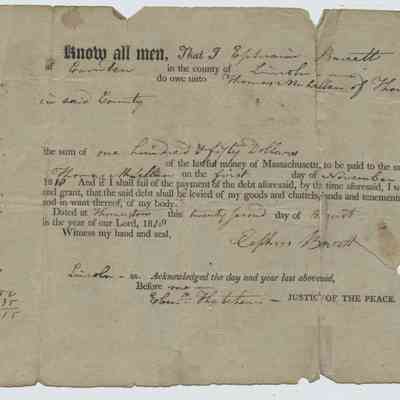 Know all men, That I Ephraim Barrett
of Camden in the county of Lincoln
do owe unto Thomas McLellan of Thom
in said County
the sum of one hundred & fifty Dollars
of the lawful money of Massachusetts, to be paid to the sa
Thomas McLellan on the first day of November
18 And if I shall fail of the payment of the debt aforesaid, by the time aforesaid, I w
and grant, that the said debt shall be levied of my goods and chattels, lands and tenement
and in want thereof, of my body.
Dated at Thomaston this twenty second day of August
in the year of our Lord, 18
Witness my hand and seal,
Barrett
Lincoln — ss. Acknowledged the day and year last abovesaid,
Before me —
Eben. Thatcher — JUSTICE OF THE PEACE.
52
35
15